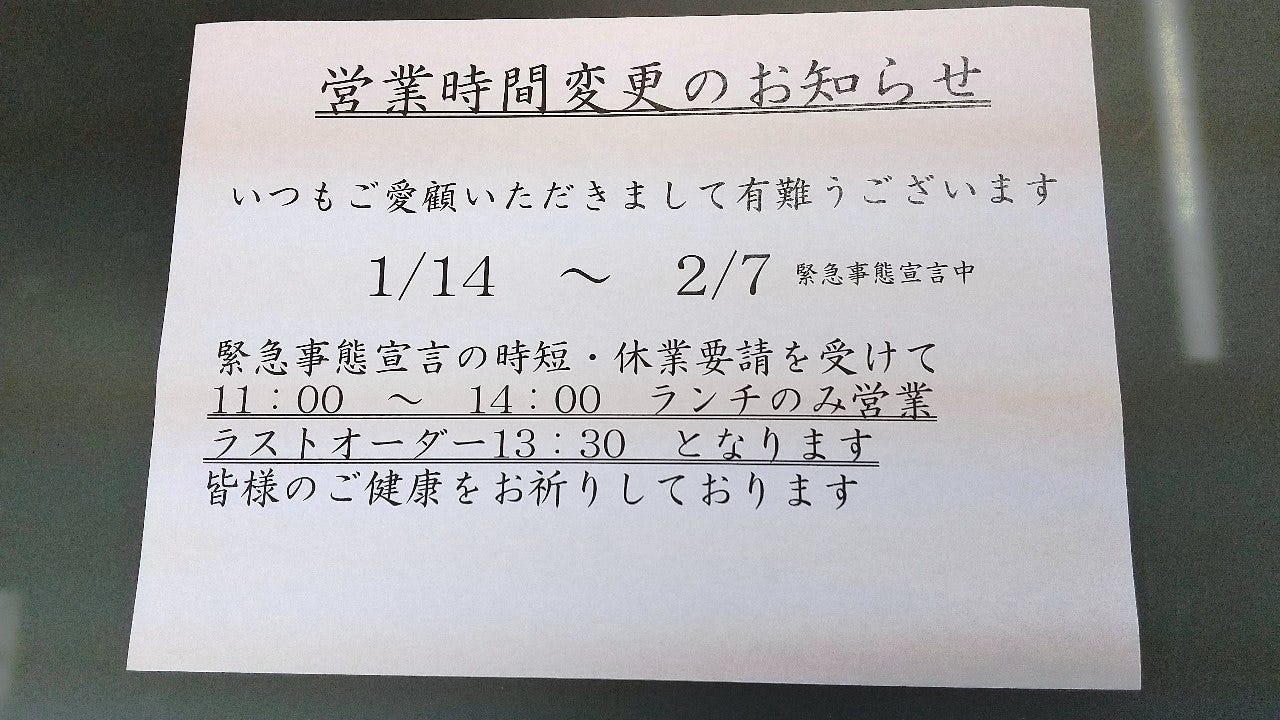 営業時間変更のお知らせ
いつもご愛顧いただきまして有難うございます
1/14　～　2/7 緊急事態宣言中
緊急事態宣言の時短・休業要請を受けて
11：00　～　14：00　ランチのみ営業
ラストオーダー13：30　となります
皆様のご健康をお祈りしております